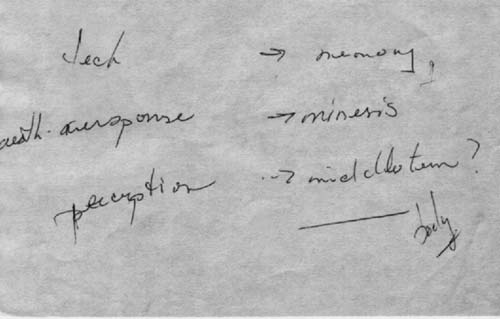 tech → memory,
aesth. → mimesis
perception → middle term?
body